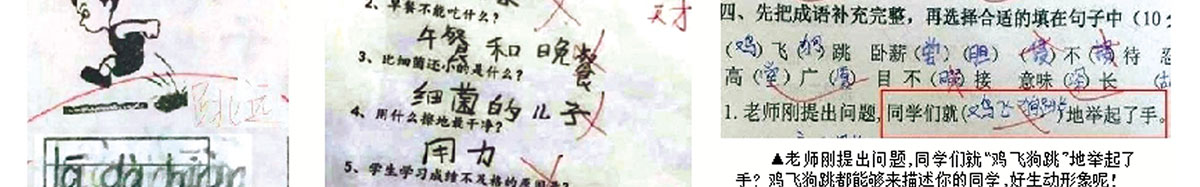 跳远
lā dà biàn
2、早餐不能吃什么？
天才
午餐和晚餐
3、比细菌还小的是什么？
细菌的儿子
4、用什么擦地最干净？
用力
5、学生学习成绩不及格的原因
四、先把成语补充完整，再选择合适的填在句子中（10
（鸡）飞（狗）跳 卧薪（尝）（胆） （ ）不（ ）待 忍
高（堂）广（厦） 目不（暇）接 意味（深）长
1.老师刚提出问题，同学们就（鸡飞狗跳）地举起了手。
▲老师刚提出问题，同学们就“鸡飞狗跳”地举起了
手？鸡飞狗跳都能够来描述你的同学，好生动形象呢！